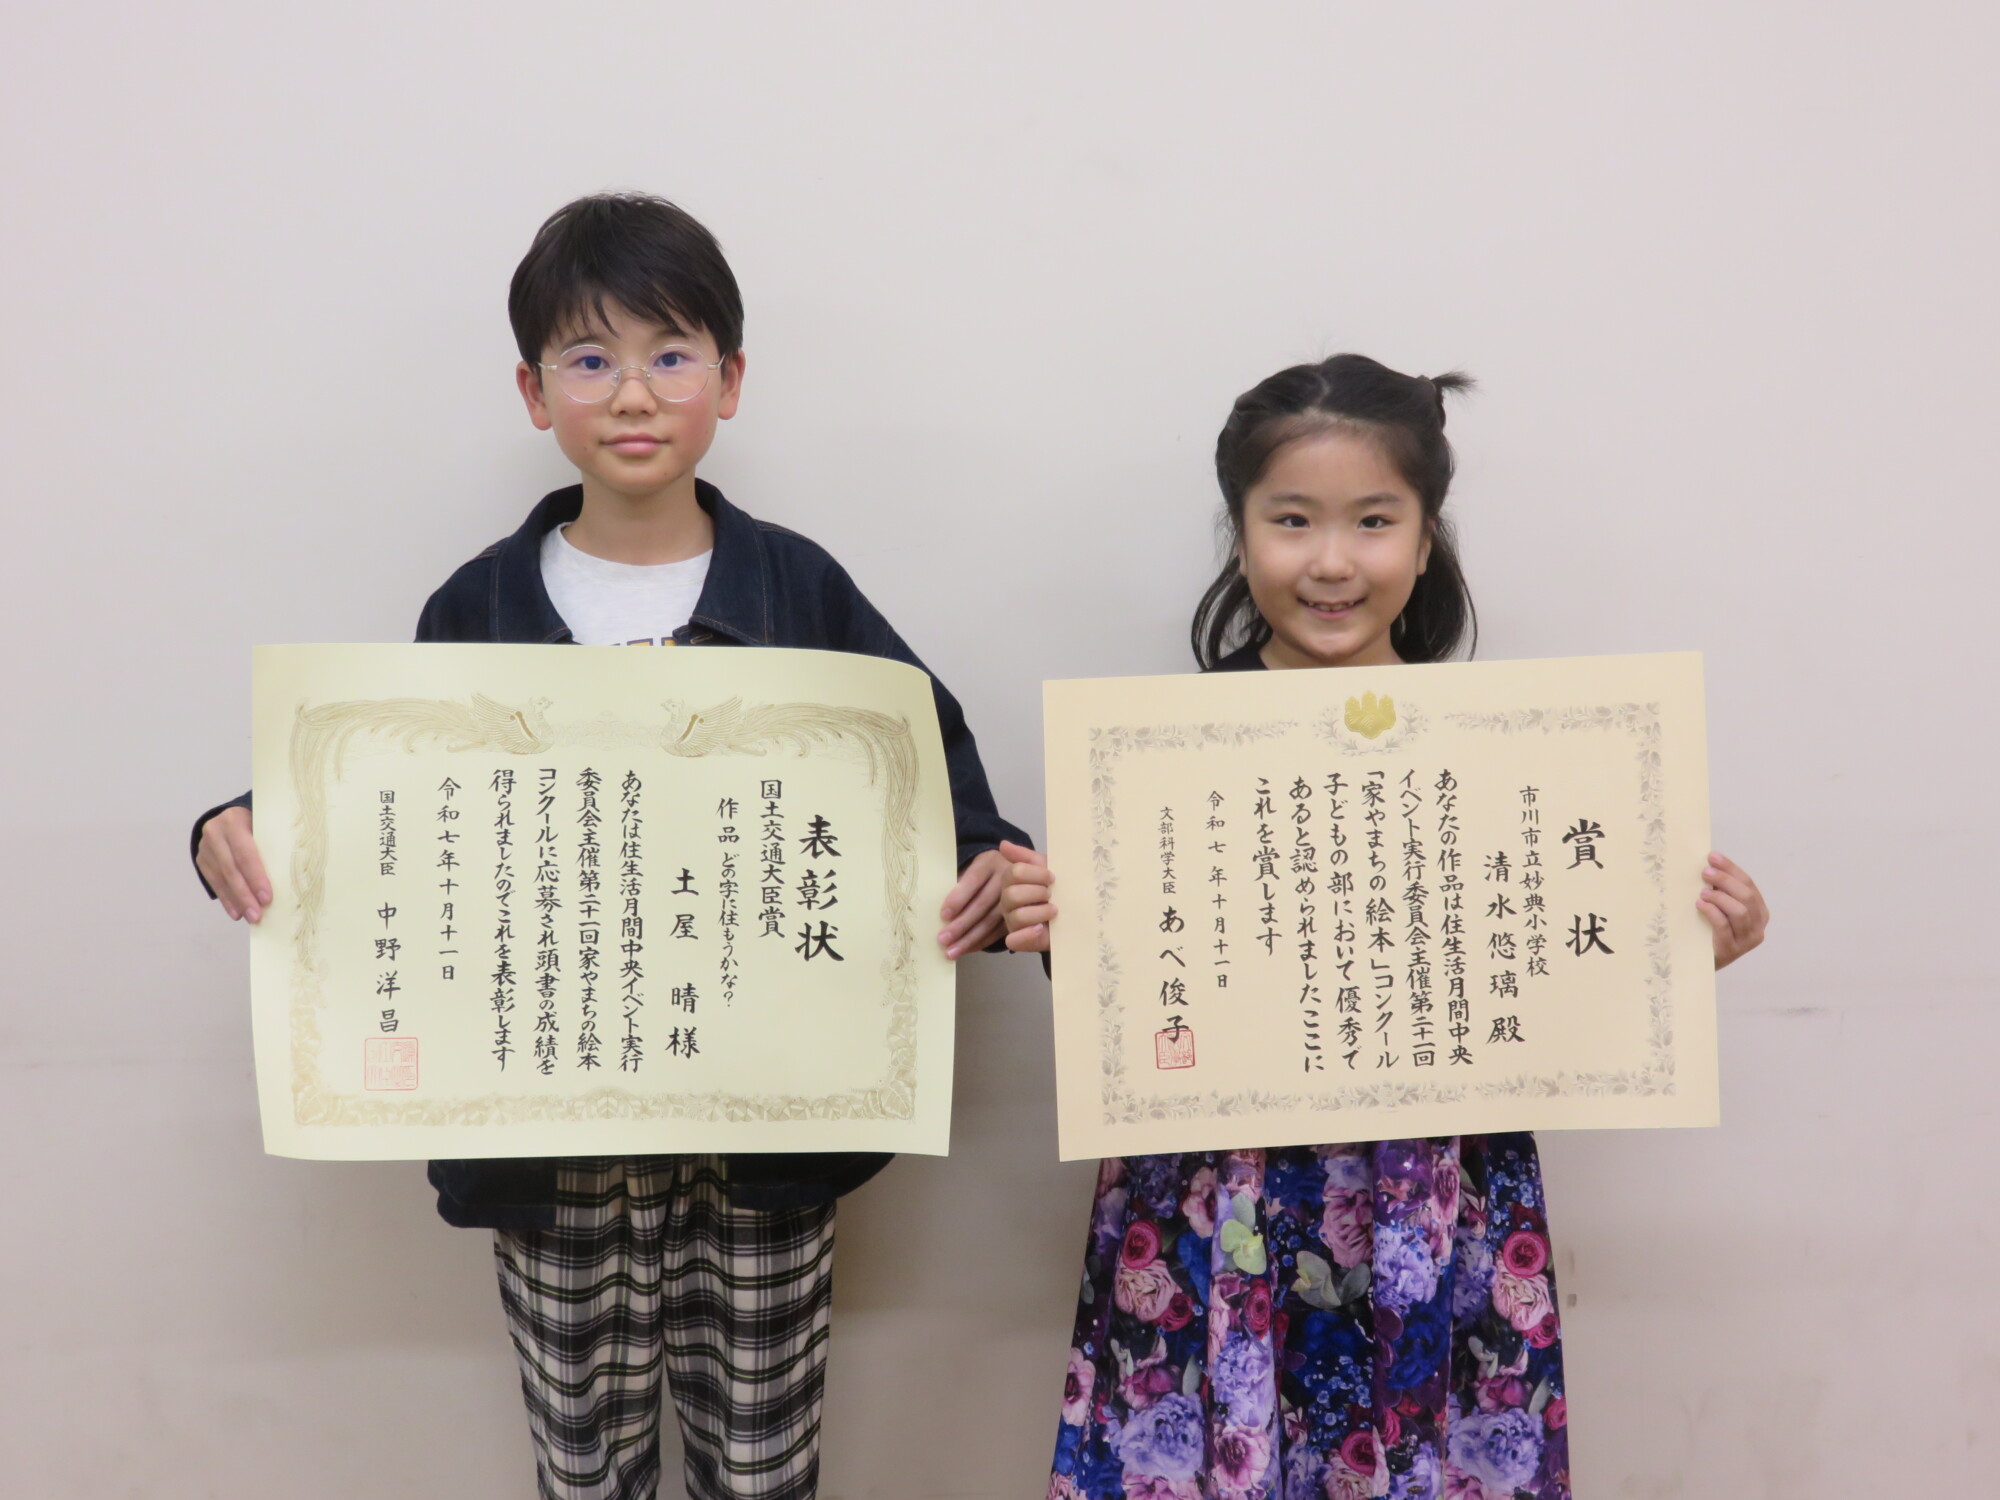 表彰状
国土交通大臣賞
作品 どの字に住もうかな?
土屋 晴様
あなたは住生活月間中央イベント実行
委員会主催第二十一回家やまちの絵本
コンクールに応募され頭書の成績を
得られましたのでこれを表彰します
令和七年十月十一日
国土交通大臣 中野洋昌
賞状
市川市立妙典小学校
清水悠璃殿
あなたの作品は住生活月間中央
イベント実行委員会主催第二十一回
「家やまちの絵本」コンクール
子どもの部において優秀で
あると認められましたここに
これを賞します
令和七年十月十一日
文部科学大臣 あべ俊子